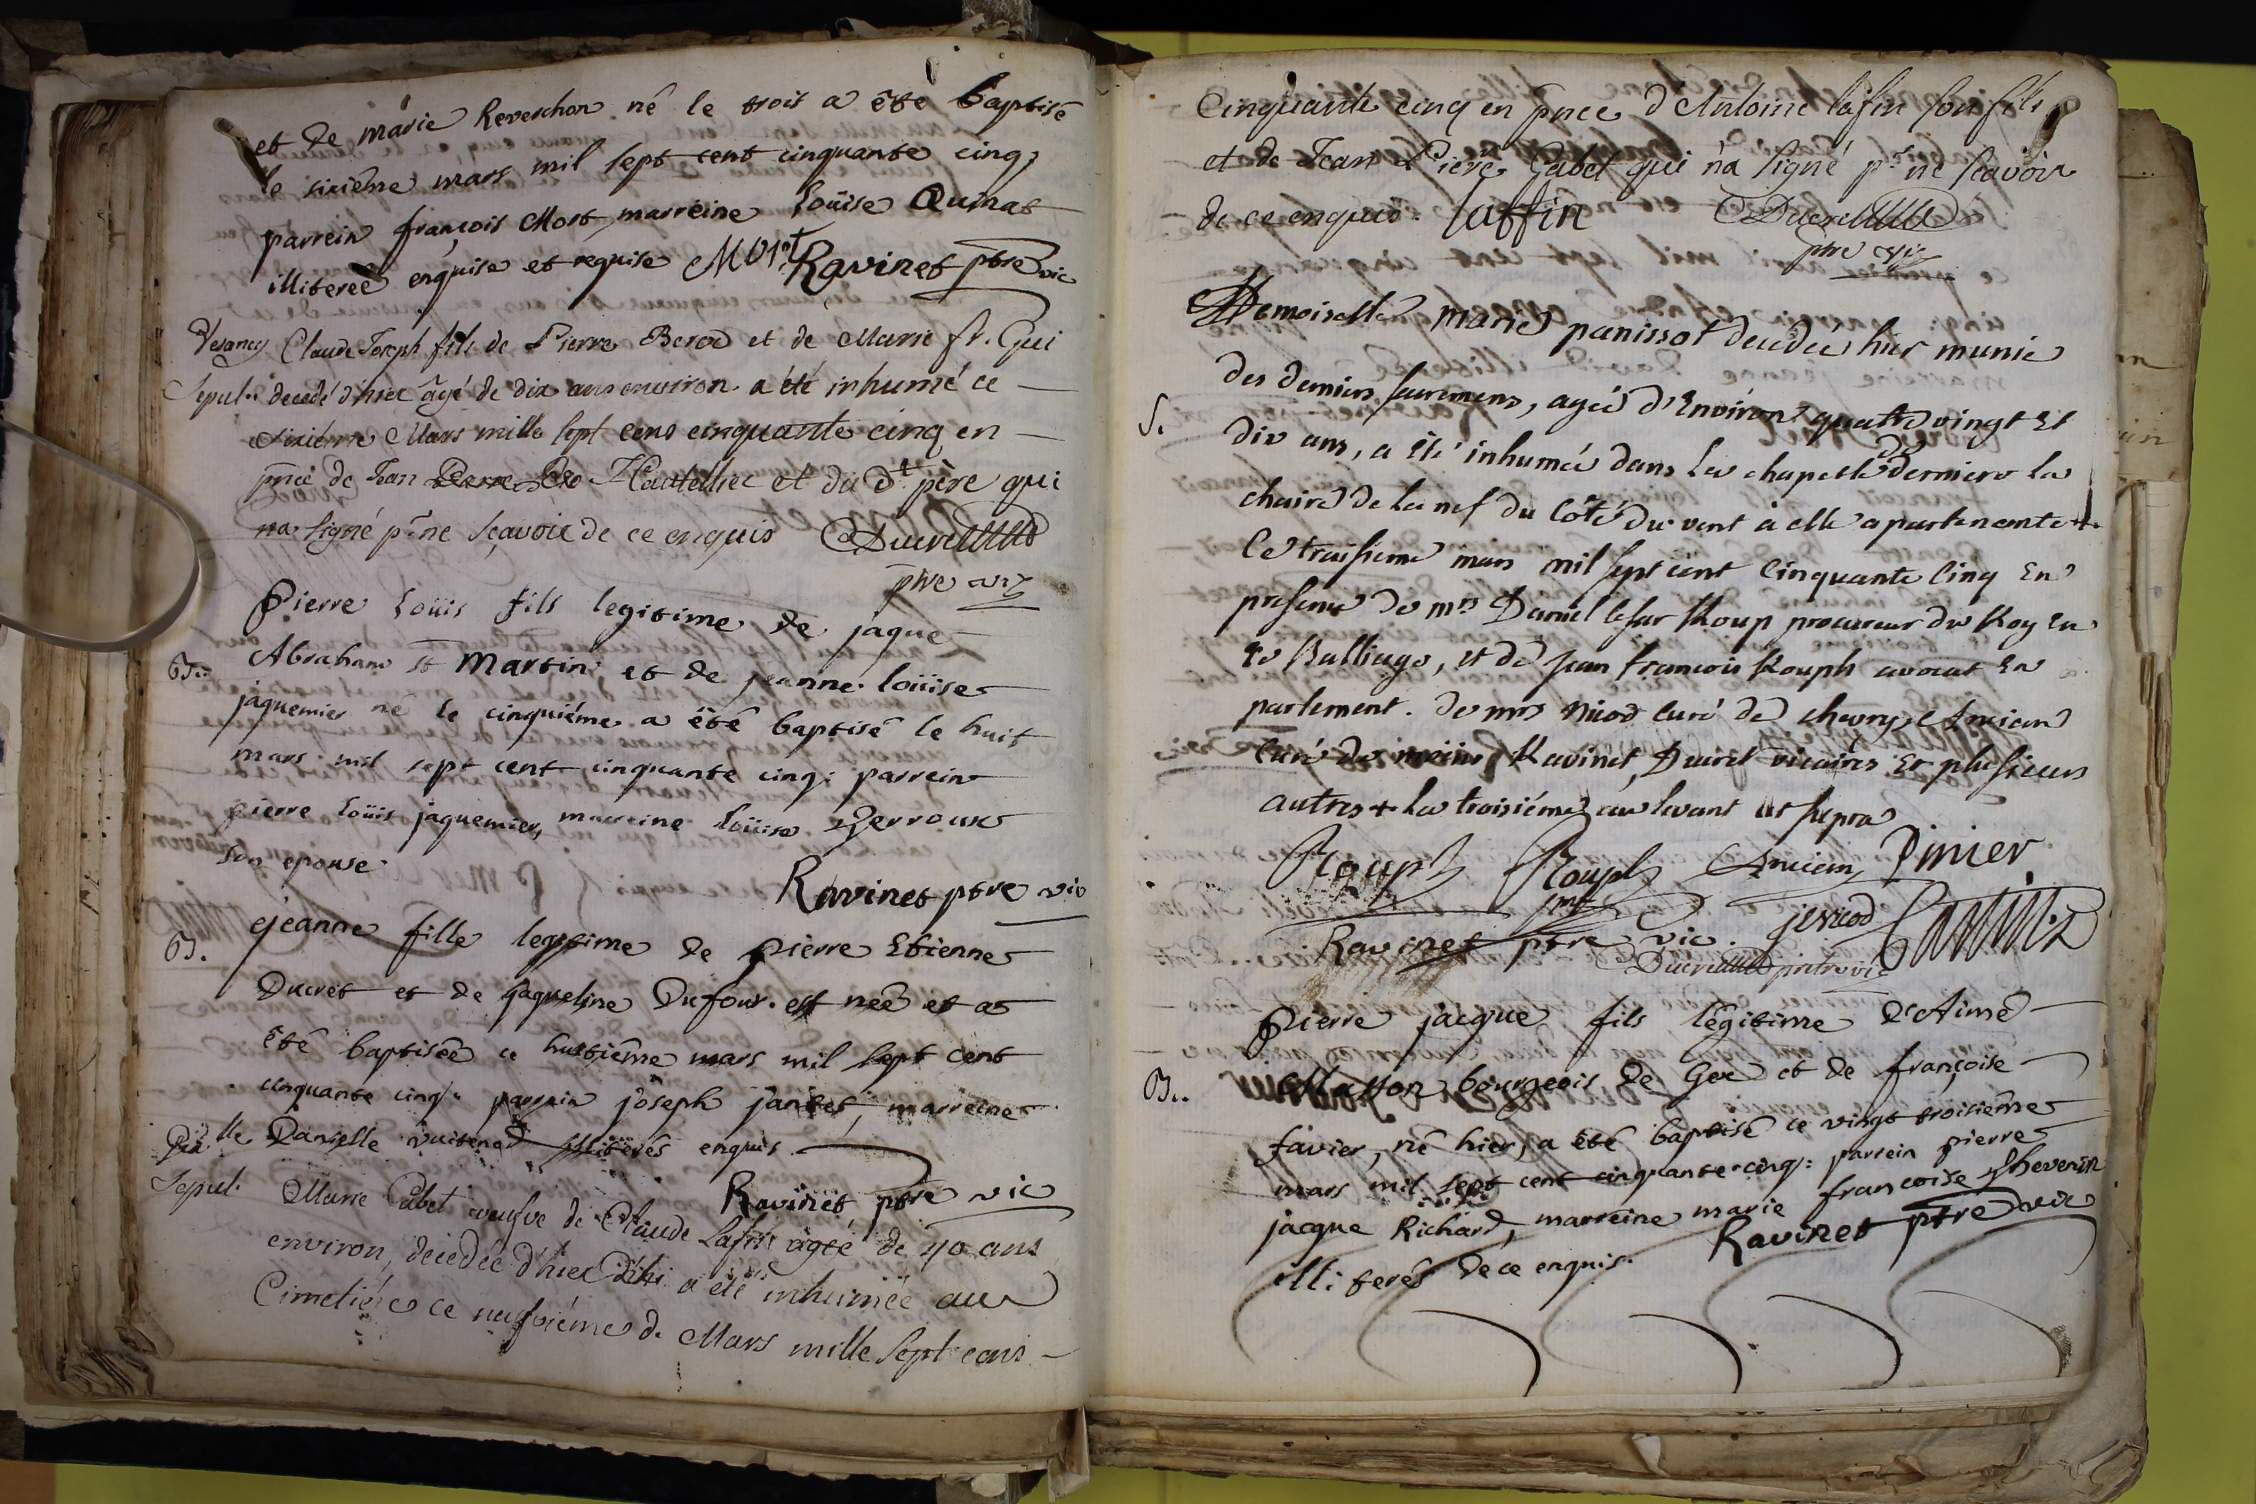 et de marie Reverchon né le trois a été baptisé
le sixiême mars mil sept cent cinquante cinq;
parrein françois Most marreine Loüise Quinat
illitereé enquise et requise MOst Ravinet ptre vic
Vesancy Claude Joseph fils de Pierre Berod et de Marie fr. Gui
Sepul. decedé d'hier âgé de dix ans environ a été inhumé ce
sixiéme Mars mille sept cens cinquante cinq en
pnce de Jean Pierre Hautellier et du dt père qui
na signé pr ne sçavoir de ce enquis Ducret
ptre vic
Pierre Loüis fils legitime de jaque
B. Abraham st Martin et de jeanne loüise
jaquemier né le cinquiéme a été baptisé le huit
mars mil sept cent cinquante cinq: parrein
pierre Loüis jaquemier, marreine Loüise Perroux
son epouse
Ravinet ptre vic
B. jeanne fille legitime de pierre Etienne
Ducret et de jaqueline Dufour est neé et a
été baptiseé ce huitiême mars mil sept cent
cinquante cinq: parrein joseph jantet, marreine
lle Danielle illiterés enquis
Ravinet ptre vic
Sepul. Marie Gabet veufve de Claude Lafin agée de 40 ans
environ, decedée d'hier a été inhumée au
Cimetiére ce neufviéme de Mars mille Sept cens
Cinquante cinq en pnce d'Antoine lafin son fils
et de Jean Pierre Gabet qui n'a signé pr ne sçavoir
de ce enquis. laffin Ducret
ptre vic
Demoiselle marie panissot decedée hier munie
des derniers sacremens, agée d'Environ quatre vingt Et
S. dix ans, a Eté inhumée dans la chapelle derniere la
chaire de la nef du côté du vent à elle apartenante +
Ce traisieme mars mil sept cent Cinquante Cinq En
presence de mrs Daniel Cesar Roup procureur du Roy En
ce Balliage, et de jean francois Rouph avocat En
parlement. de mrs Nicod Curé de chevry, Ancien
Curé de meiin Ravinet, Ducret vicaires Et plusieurs
autres + la troisiéme au levant ut supra
Rouph Rouph Ancien Pinier
Ravinet ptre vic. je nicod
Ducret pretre vic
Pierre jacque fils légitime d'Aimé
B.. Masson bourgeois de Gex et de françoise
favier, né hier, a été baptisé ce vingt troisiême
mars mil sept cent cinquante cinq: parrein pierre
jacque Richard, marreine marie francoise Thevenin
illiterés de ce enquis. Ravinet ptre vic